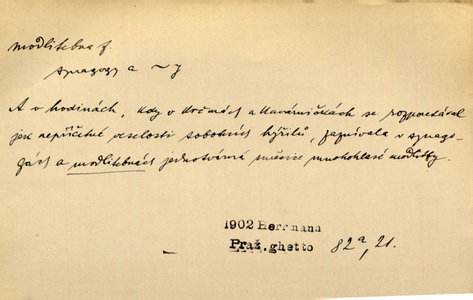 modlitebna f.
synagogy a ~ y
A v hodinách, kdy v krčmách a kavárničkách se rozpoutával
jek nepříčetné veselosti sobotních hýřilů, zaznívala v synago-
gách a modlitebnách jednotvárná směsice mnohohlasé modlitby.
1902 Herrmann
Praž.ghetto 82a, 21.